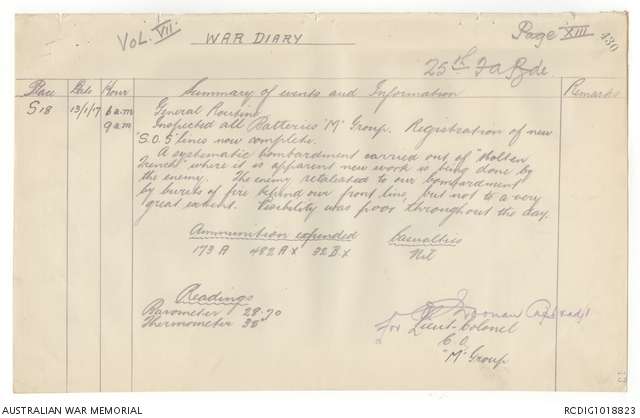 Vol. VII. WAR DIARY Page XIII 430
25th Fa Bde
Place Date Hour Summary of events and Information Remarks
S18 13/1/17 6 am General Routine
9 am Inspected all Batteries "M" Group. Registration of new
S.O.S lines now complete.
A systematic bombardment carried out of
Trench where it is apparent new work is being done by
the enemy. The enemy retaliated to our bombardment
by bursts of fire behind our front line, but not to a very
great extent. Visibility was poor throughout the day.
Ammunition expended Casualties
173 A 482 AX 32 BX Nil
Readings
Barometer 28.70
Thermometer 38°
Capt & adjt
for Lieut-Colonel
C.O.
"M" Group
AUSTRALIAN WAR MEMORIAL RCDIG1018823